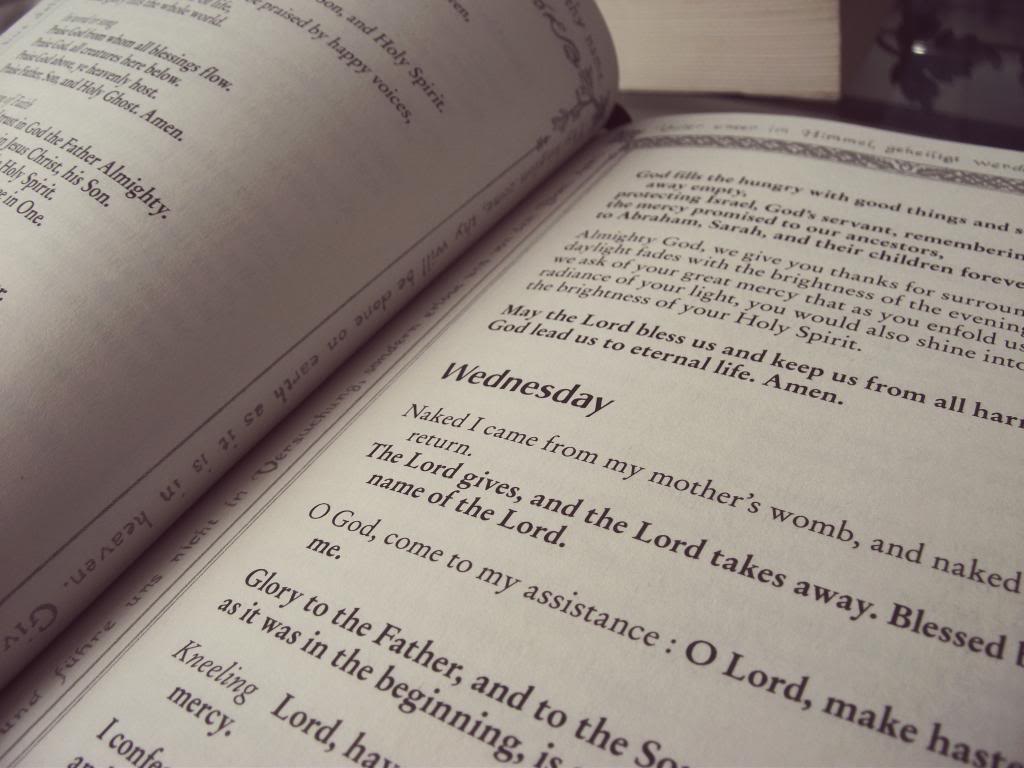 of life,
the whole world.
son, and Holy Spirit.
praised by happy voices,
God from whom all blessings flow.
Praise God, all creatures here below.
Praise God above, ye heavenly host.
Praise Father, Son, and Holy Ghost. Amen.
trust in God the Father Almighty.
in Jesus Christ, his Son.
Holy Spirit.
e in One.
thy will be done on earth as it is in heaven. Giv
im Himmel, geheiligt werd
God fills the hungry with good things and s
away empty,
protecting Israel, God's servant, rememberin
the mercy promised to our ancestors,
to Abraham, Sarah, and their children foreve
Almighty God, we give you thanks for surroun
daylight fades with the brightness of the evening
we ask of your great mercy that as you enfold us
radiance of your light, you would also shine into
the brightness of your Holy Spirit.
May the Lord bless us and keep us from all harm
God lead us to eternal life. Amen.
Wednesday
Naked I came from my mother's womb, and naked
return.
The Lord gives, and the Lord takes away. Blessed b
name of the Lord.
O God, come to my assistance : O Lord, make haste
me.
Glory to the Father, and to the So
as it was in the beginning, is
Kneeling Lord, hav
mercy.
I confe